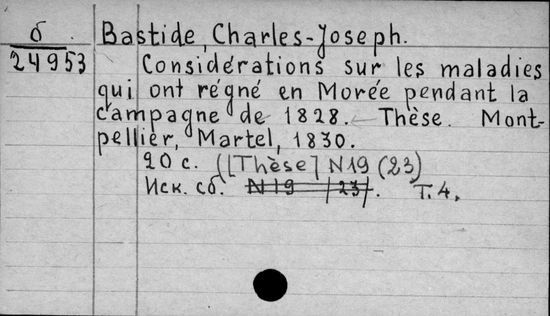 б.
24953
Bastide, Charles-Joseph.
Considérations sur les maladies
qui ont régné en Morée pendant la
campagne de 1828. - Thèse. Mont-
pellier, Martel, 1830.
20 с. ([Thèse] N19 (23)
Иск. сб. N 19 /23/. Т. 4.